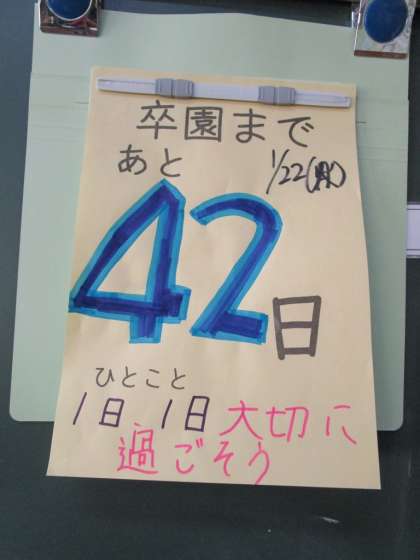 卒園まで
あと 1/22(月)
42日
ひとこと
1日1日大切に
過ごそう